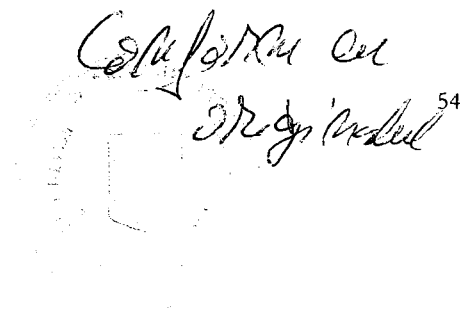 Conform cu
originalul
54